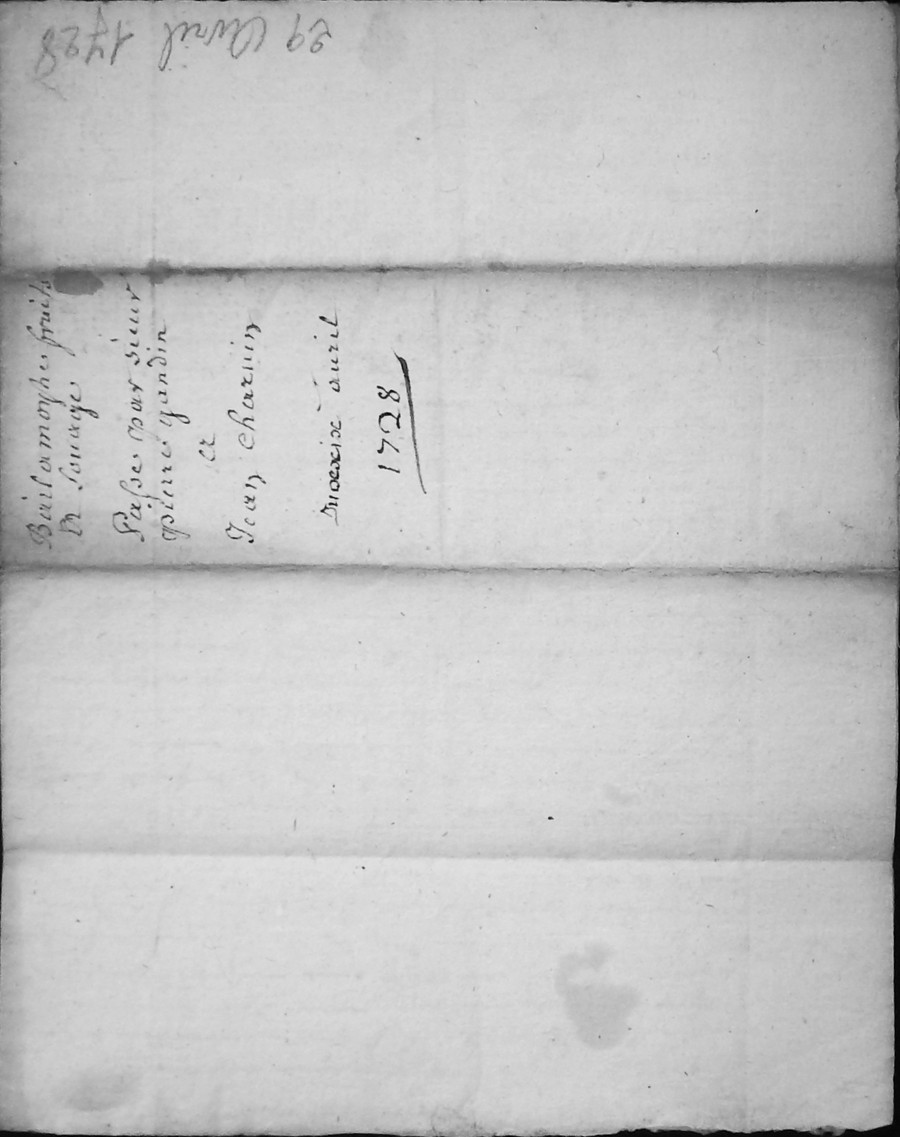 29 Avril 1728
Bail a moyhe fruits
Et Louage
Passe par sieur
pierre gandin
Et
Jean Charuin
Du xxix avril
1728